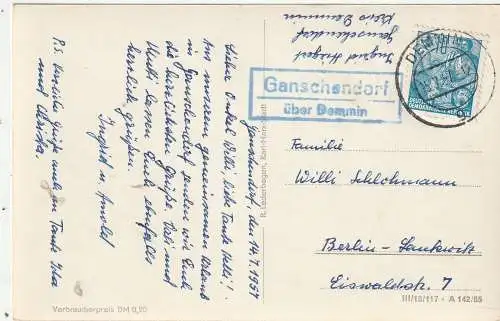 Ganschendorf, 14.7.1957
Liebe Onkel Willi, liebe Tante Helli!
Aus unserem gemeinsamen Urlaub
in Ganschendorf senden wir Euch
die herzlichsten Grüße. Vati und
Mutti lassen Euch ebenfalls
herzlich grüßen.
Ingrid u. Arnold
P.S. herzliche Grüße auch an Tante
und
Verbraucherpreis DM 0,20
Ingrid
Ganschendorf
Kreis Demmin
Ganschendorf
über Demmin
DEMMIN
DEUTSCHE
DEMOKRATISCHE REPUBLIK
Familie
Willi Schlohmann
Berlin-Lankwitz
Eiswaldstr. 7
III/18/117 · A 142/55